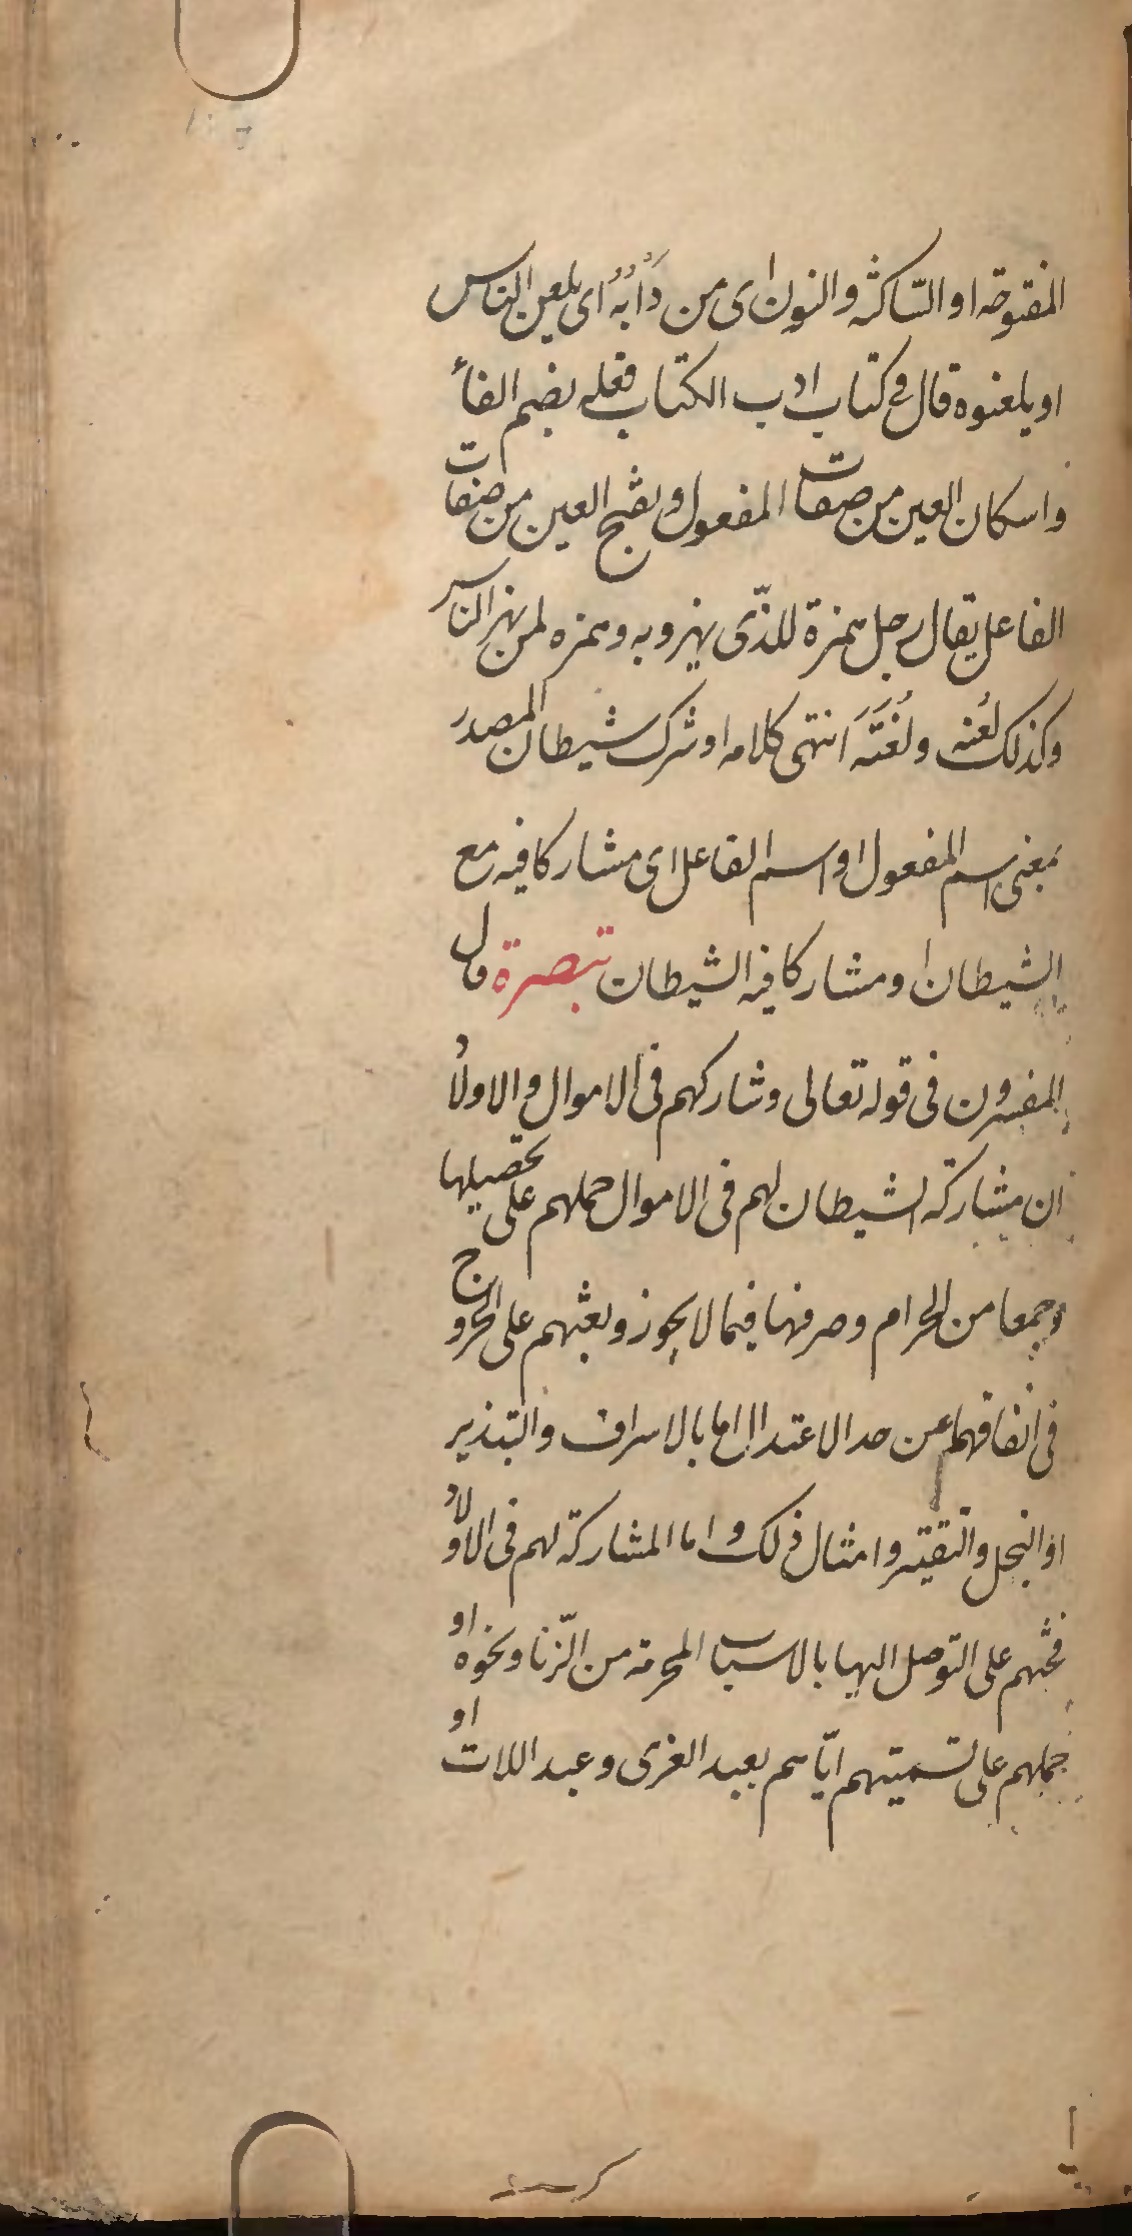 المفتوحة او الساكنة والنون اى من دَأبُهُ اى يلعن الناس
او يلعنوه قال فى كتاب ادب الكتاب فعله بضم الفاء
واسكان العين من صفات المفعول وبفتح العين من صفات
الفاعل يقال رجل همزة للذّى يهزو به وهمزه لمن يهزء الناس
وكذلك لُعْنه ولُعَنَه انتهى كلامه او شرك شيطان المصدر
بمعنى اسم المفعول او اسم الفاعل اى مشاركا فيه مع
الشيطان او مشاركا فيه الشيطان تبصرة قال
المفسرون فى قوله تعالى وشاركهم فى الاموال والاولاد
ان مشاركة الشيطان لهم فى الاموال حملهم على تحصيلها
وجمعها من الحرام وصرفها فيما لا يجوز وبعثهم على الخروج
فى انفاقها عن حد الاعتدال اما بالاسراف والتبذير
او البخل والتقتير وامثال ذلك واما المشاركة لهم فى الاولاد
فحثهم على التوصل اليها بالاسباب المحرمة من الزّنا ونحوه او
حملهم على تسميتهم ايّاهم بعبد العزى وعبد اللات او